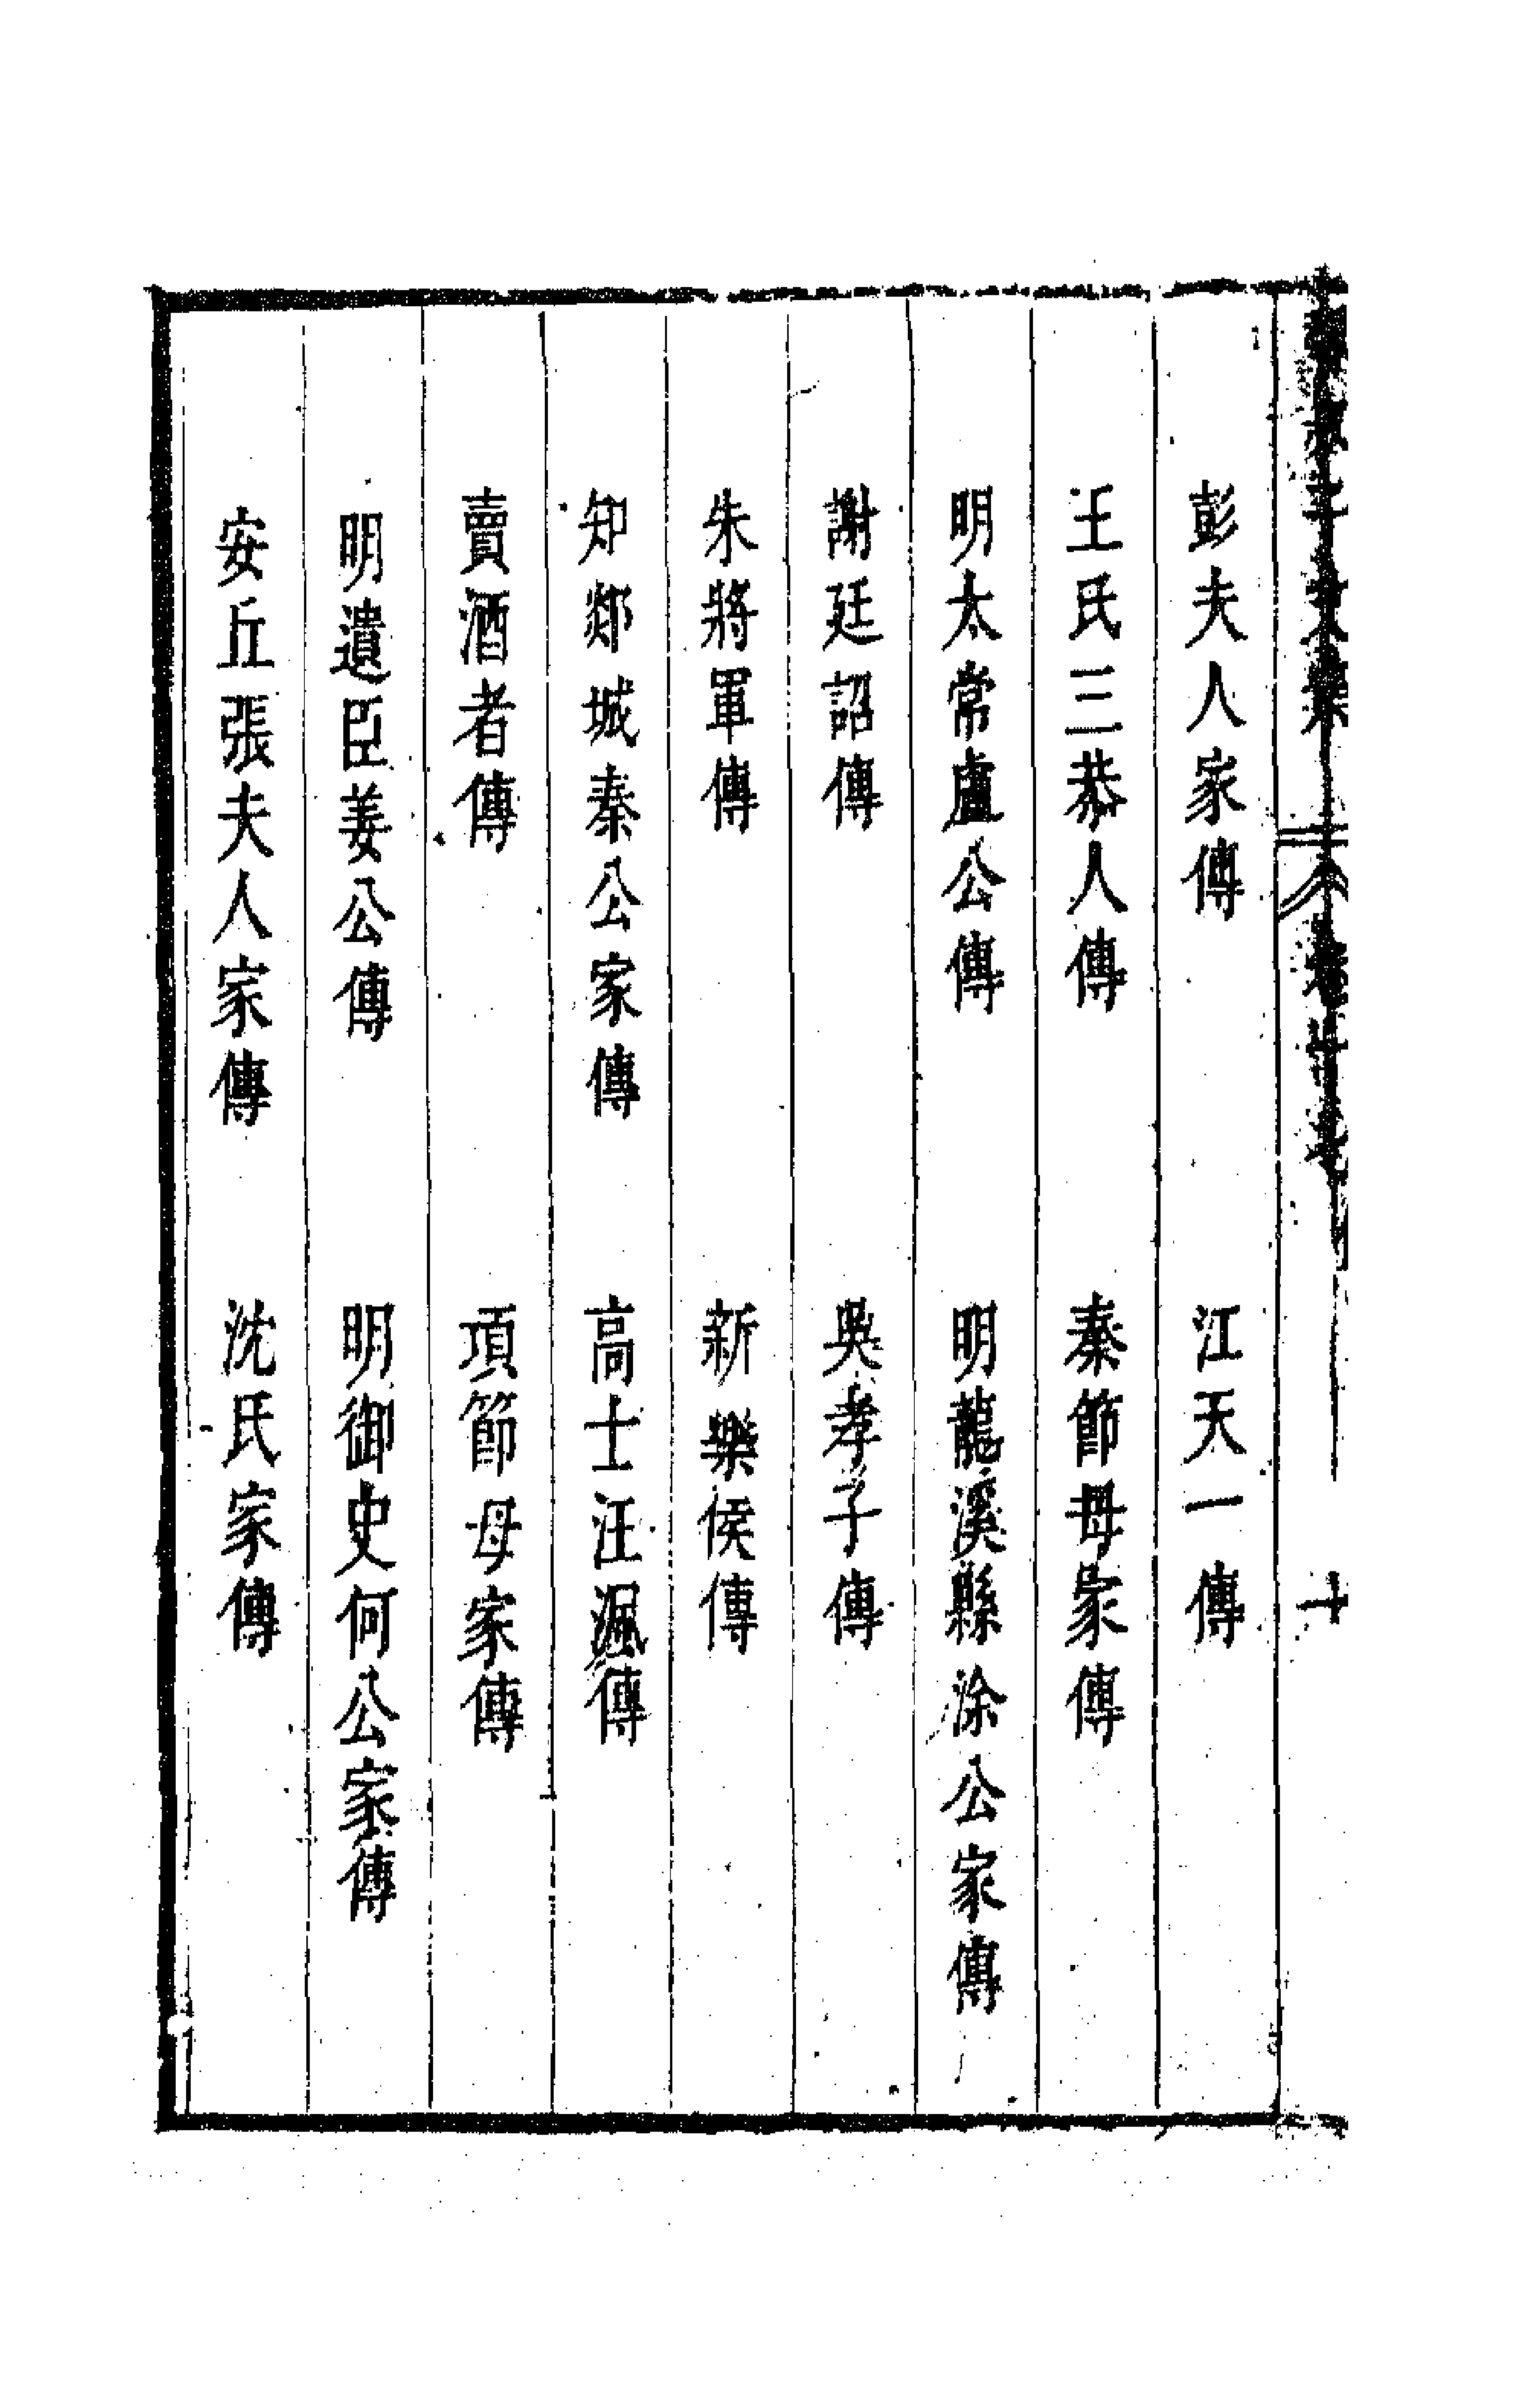 彭夫人家傳　江天一傳
王氏三恭人傳　秦節母家傳
明太常盧公傳　明龍溪縣涂公家傳
謝廷詔傳　吳孝子傳
朱將軍傳　新樂侯傳
知郯城秦公家傳　高士汪渢傳
賣酒者傳　項節母家傳
明遺臣姜公傳　明御史何公家傳
安丘張夫人家傳　沈氏家傳